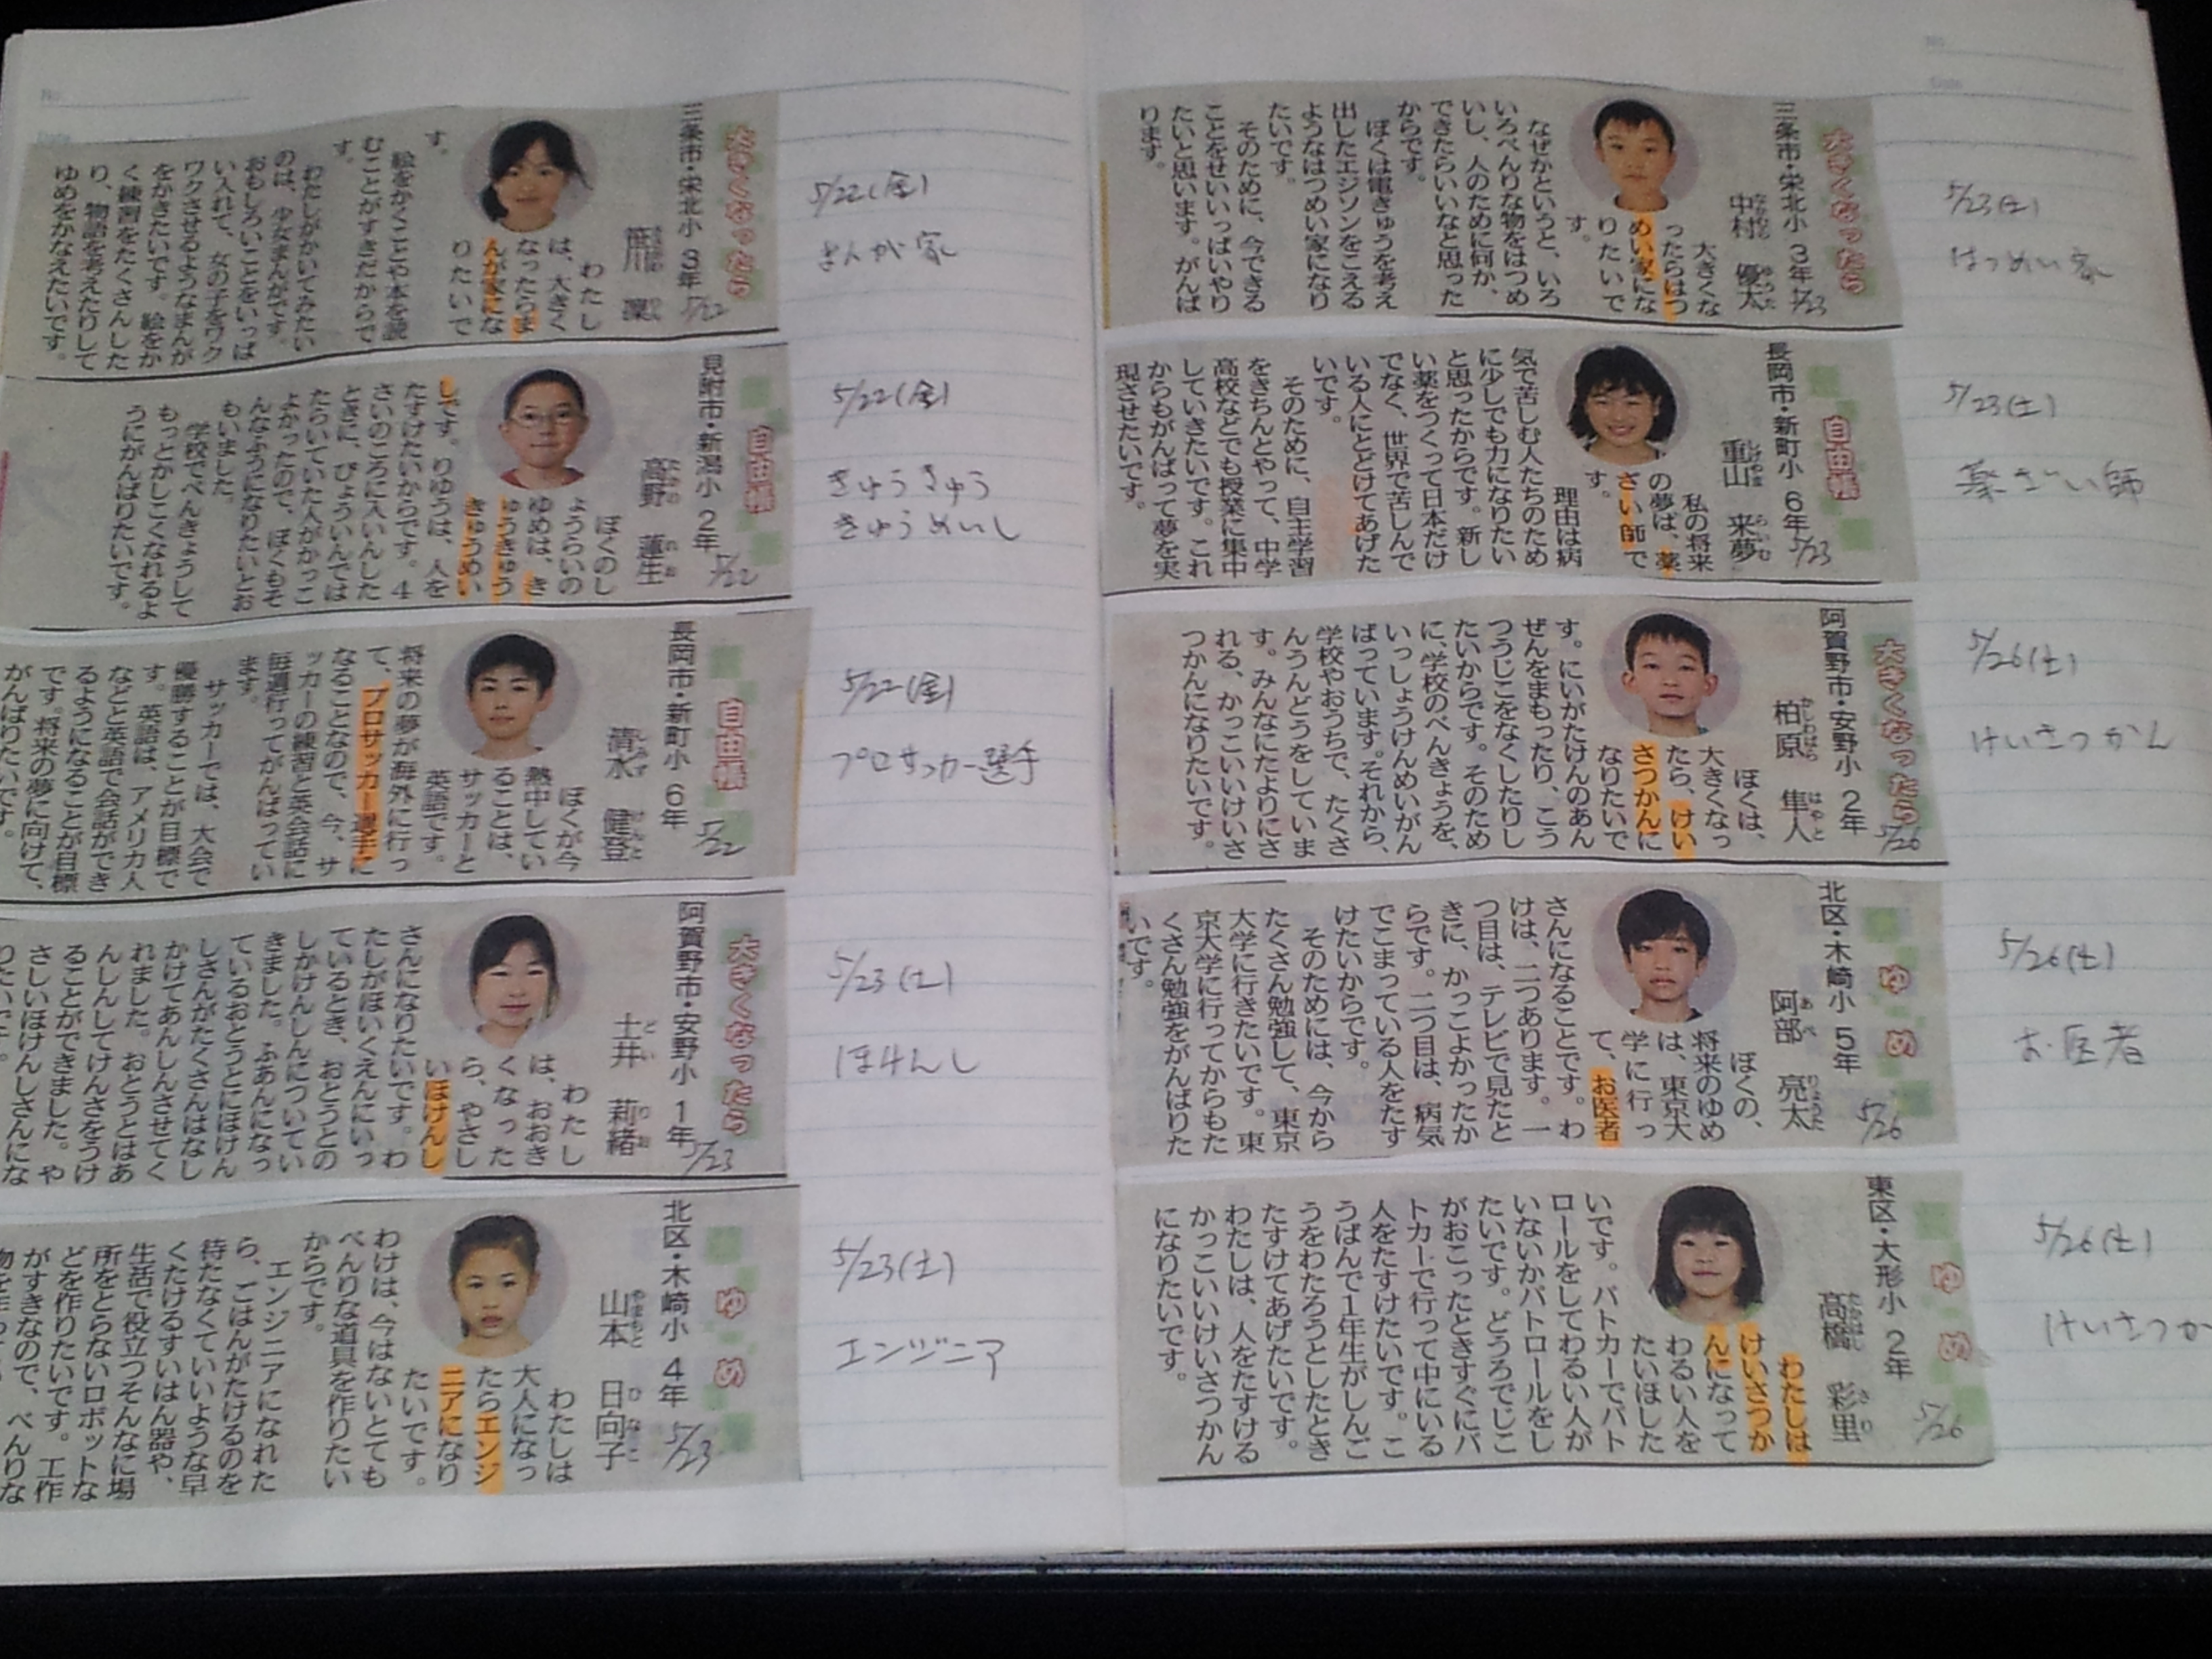 大きくなったら
三条市・栄北小 3年
笹川 凜
5/22
わたし
は、大きく
なったらま
んが家にな
りたいで
す。
絵をかくことや本を読
むことがすきだからで
す。
わたしがかいてみたい
のは、少女まんがです。
おもしろいことをいっぱ
い入れて、女の子をワク
ワクさせるようなまんが
をかきたいです。絵をか
く練習をたくさんした
り、物語を考えたりして
ゆめをかなえたいです。
5/22(金)
まんが家
自由帳
見附市・新潟小 2年
高野 蓮生
たかの れお
5/22
ぼくのし
ょうらいの
ゆめは、き
ゅうきゅう
きゅうめい
しです。りゆうは、人を
たすけたいからです。4
さいのころに入いんした
ときに、びょういんではた
らいていた人がかっこ
よかったので、ぼくもそ
んなふうになりたいとお
もいました。
学校でべんきょうして
もっとかしこくなれるよ
うにがんばりたいです。
5/22(金)
きゅうきゅう
きゅうめいし
自由帳
長岡市・新町小 6年
清水 健登
しみず けんと
5/22
ぼくが今
熱中してい
ることは、
サッカーと
英語です。
将来の夢が海外に行っ
て、プロサッカー選手に
なることなので、今、サ
ッカーの練習と英会話に
毎週行ってがんばってい
ます。
サッカーでは、大会で
優勝することが目標で
す。英語は、アメリカ人
などと英語で会話ができ
るようになることが目標
です。将来の夢に向けて、
がんばりたいです。
5/22(金)
プロサッカー選手
大きくなったら
阿賀野市・安野小 1年
土井 莉緒
どい りお
5/23
わたし
は、おおき
くなった
ら、やさし
いほけんし
さんになりたいです。わ
たしがほいくえんにいっ
ているとき、おとうとの
しかけんしんについてい
きました。ふあんになっ
ているおとうとにほけん
しさんがたくさんはなし
かけてあんしんさせてく
れました。おとうとはあ
んしんしてけんさをうけ
ることができました。や
さしいほけんしさんにな
りたいです。
5/23(土)
ほけんし
ゆめ
北区・木崎小 4年
山本 日向子
やまもと ひなこ
5/23
わたしは
大人になっ
たらエンジ
ニアになり
たいです。
わけは、今はないとても
べんりな道具を作りたい
からです。
エンジニアになれた
ら、ごはんがたけるのを
待たなくていいような早
くたけるすいはん器や、
生活で役立つそんなに場
所をとらないロボットな
どを作りたいです。工作
がすきなので、べんりな
5/23(土)
エンジニア
大きくなったら
三条市・栄北小 3年
中村 優太
なかむら ゆうた
5/23
大きくな
ったらはつ
めい家にな
りたいで
す。
なぜかというと、いろ
いろべんりな物をはつめ
いし、人のために何か、
できたらいいなと思った
からです。
ぼくは電きゅうを考え
出したエジソンをこえる
ようなはつめい家になり
たいです。
そのために、今できる
ことをせいいっぱいやり
たいと思います。がんば
ります。
5/23(土)
はつめい家
自由帳
長岡市・新町小 6年
重山 来夢
しげやま らいむ
5/23
私の将来
の夢は、薬
ざい師で
す。
理由は病
気で苦しむ人たちのため
に少しでも力になりたい
と思ったからです。新し
い薬をつくって日本だけ
でなく、世界で苦しんで
いる人にとどけてあげた
いです。
そのために、自主学習
をきちんとやって、中学
高校などでも授業に集中
していきたいです。これ
からもがんばって夢を実
現させたいです。
5/23(土)
薬ざい師
大きくなったら
阿賀野市・安野小 2年
柏原 隼人
かしわばら はやと
5/26
ぼくは、
大きくなっ
たら、けい
さつかんに
なりたいで
す。にいがたけんのあん
ぜんをまもったり、こう
つうじこをなくしたりし
たいからです。そのため
に、学校のべんきょうを、
いっしょうけんめいがん
ばっています。それから、
学校やおうちで、たくさ
んうんどうをしていま
す。みんなにたよりにさ
れる、かっこいいけいさ
つかんになりたいです。
5/26(土)
けいさつかん
ゆめ
北区・木崎小 5年
阿部 亮太
あべ りょうた
5/26
ぼくの、
将来のゆめ
は、東京大
学に行っ
て、お医者
さんになることです。わ
けは、二つあります。一
つ目は、テレビで見たと
きに、かっこよかったか
らです。二つ目は、病気
でこまっている人をたす
けたいからです。
そのためには、今から
たくさん勉強して、東京
大学に行きたいです。東
京大学に行ってからもた
くさん勉強をがんばりた
いです。
5/26(土)
お医者
ゆめ
東区・大形小 2年
髙橋 彩里
たかはし さり
5/26
わたしは
けいさつか
んになって
わるい人を
たいほした
いです。パトカーでパト
ロールをしてわるい人が
いないかパトロールをし
たいです。どうろでじこ
がおこったときすぐにパ
トカーで行って中にいる
人をたすけたいです。こ
うばんで1年生がしんご
うをわたろうとしたとき
たすけてあげたいです。
わたしは、人をたすける
かっこいいけいさつかん
になりたいです。
5/26(土)
けいさつか